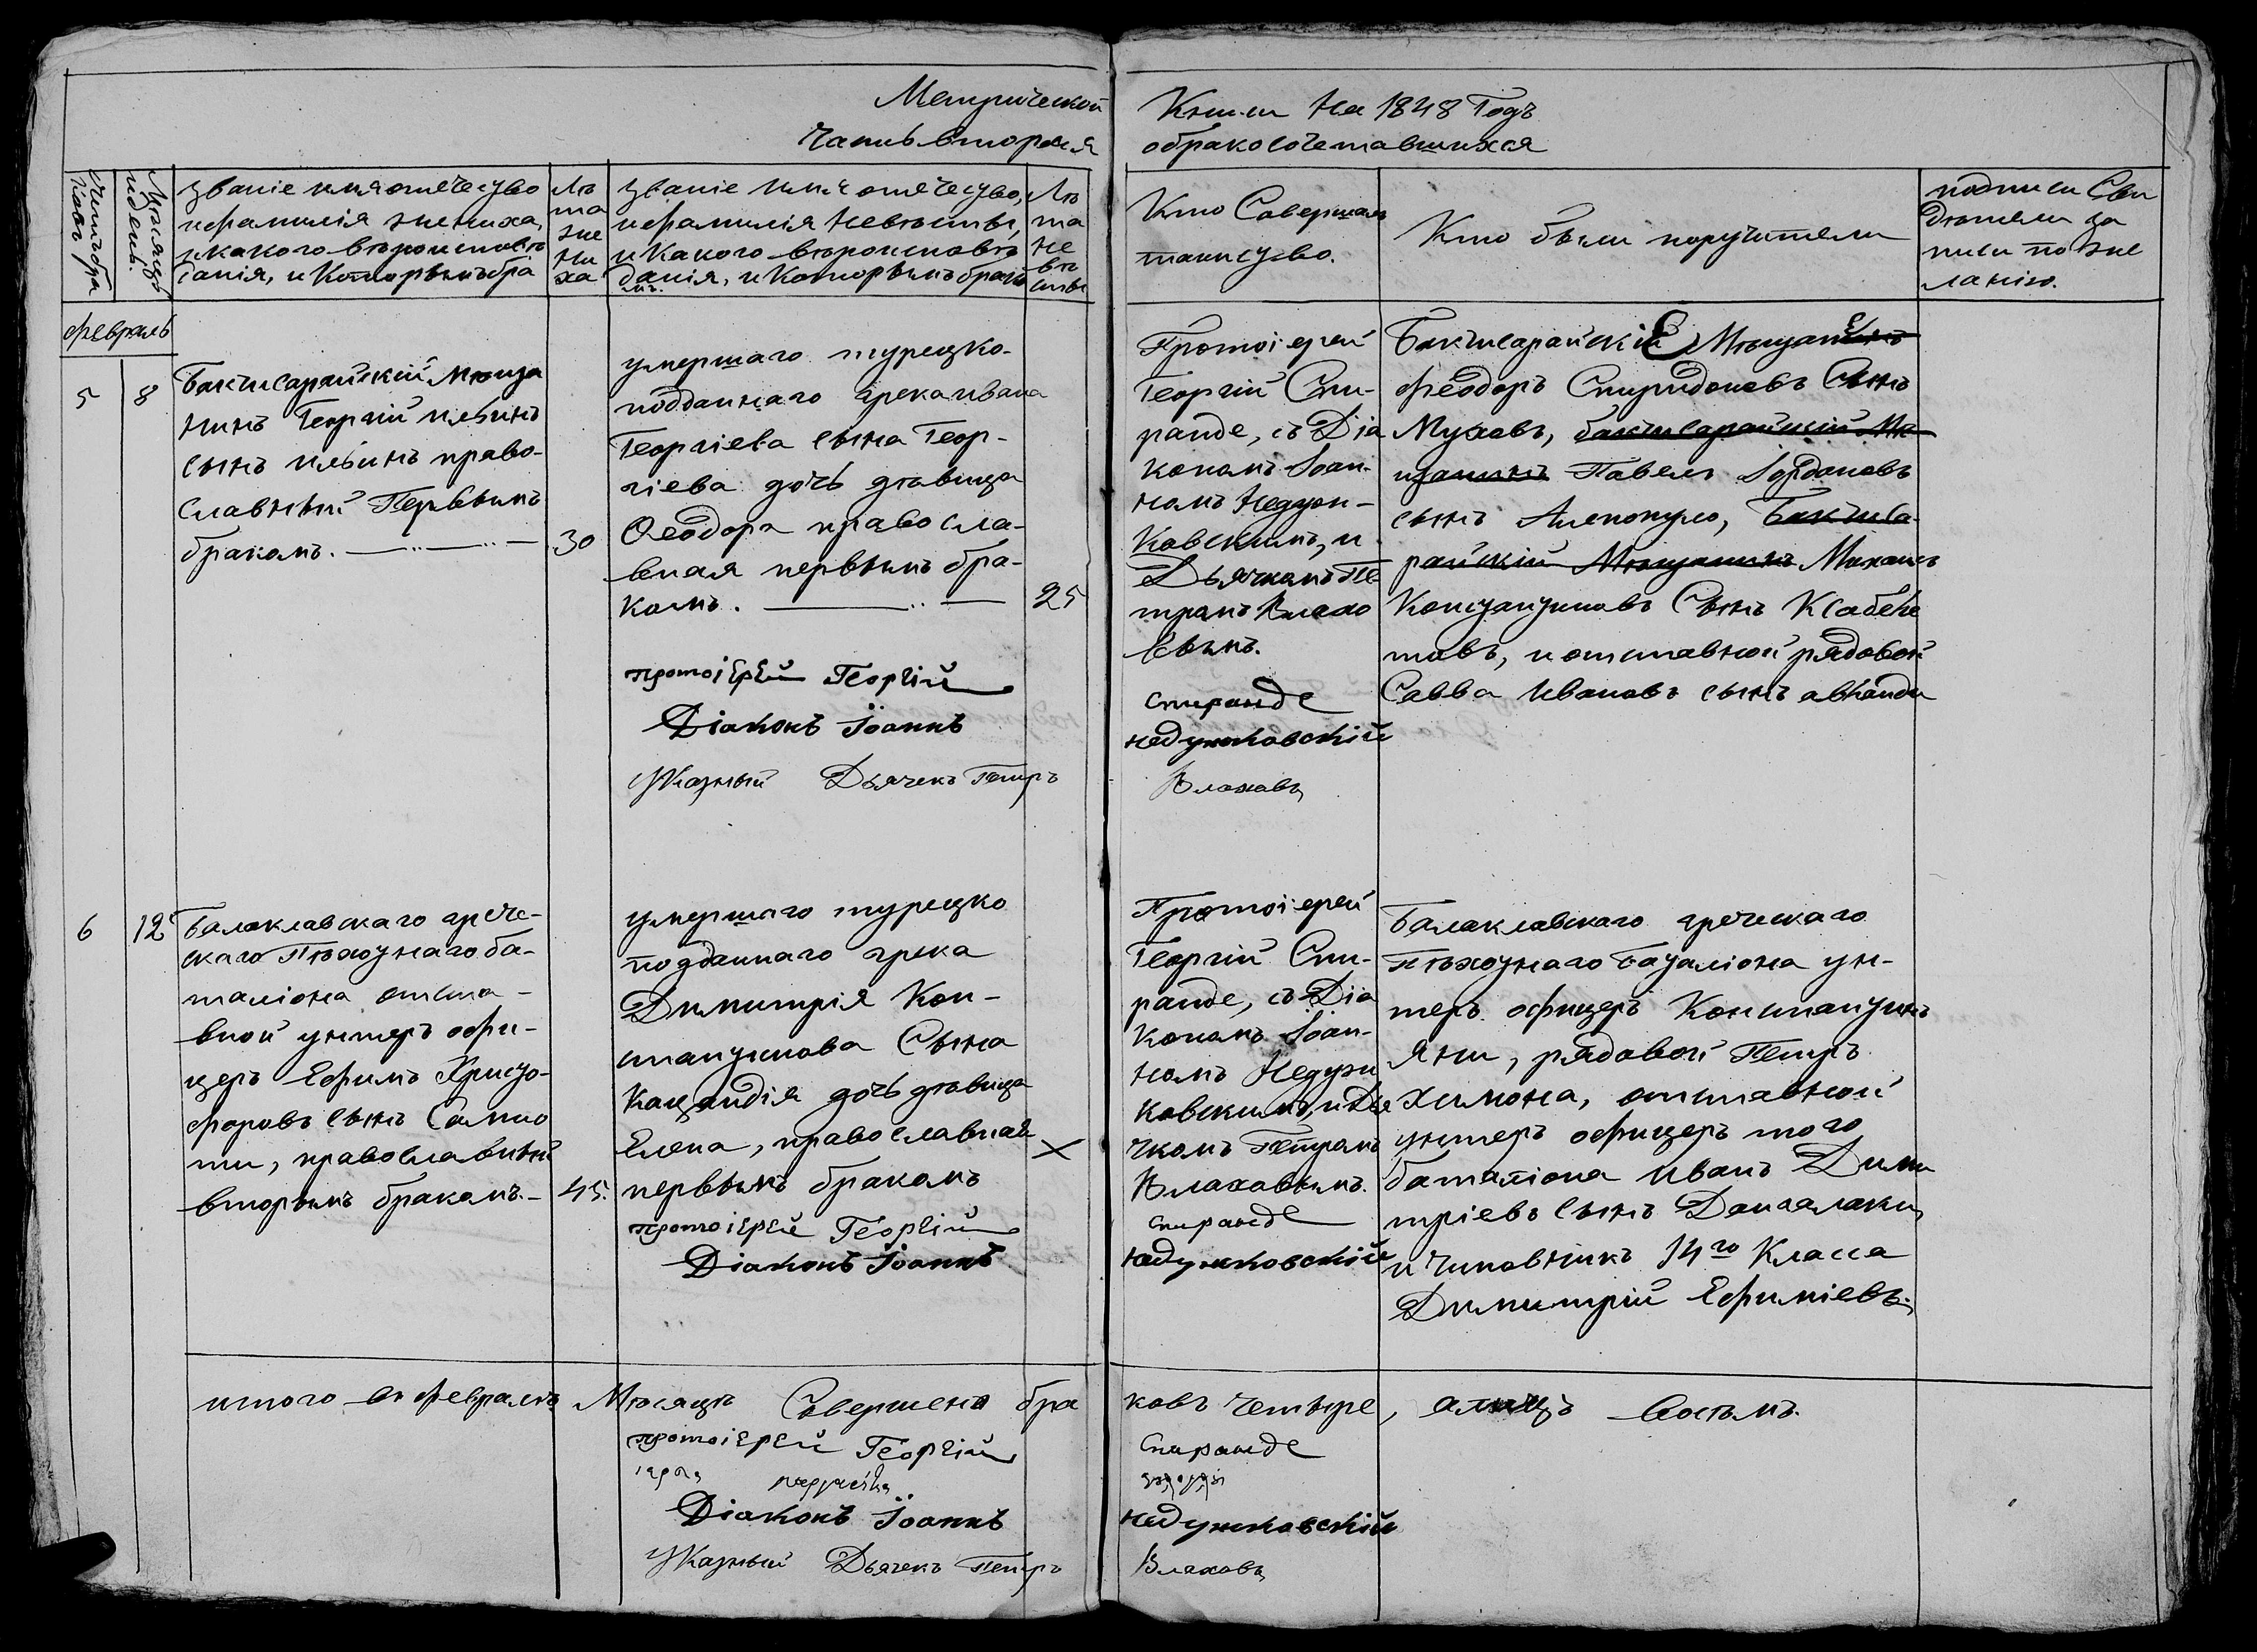 Метрической
Часть вторая
Книги на 1848 Годъ
о бракосочетавшихся
Счетъ бра
ковъ
Мѣсяцъ
и день.
Званіе имя отечество
и фамилія жениха,
и какого вѣроисповѣ
данія, и Которымъ бра
Лѣ
та
же
ни
ха
Званіе имя отечество,
и фамилія Невѣсты,
и Какого вѣроисповѣ
данія, и Которымъ брако
мъ.
Лѣ
та
не
вѣ
сты
Кто Совершалъ
таинство.
Кто были поручители
подписи Сви
дѣтелей за
писи по же
ланію.
февраль
5
8
Бахчисарайскій Мѣща
нинъ Георгій ильинъ
сынъ ильинъ право-
славный Первымъ
бракомъ.
30
умершаго турецко-
подданнаго грека ивана
Георгіева сына Геор-
гіева дочь дѣвица
Ѳеодора правосла-
вная первымъ бра-
комъ.
25
протоіерей Георгій
Діаконъ Іоаннъ
Указный Дьячекъ Петръ
Протоіерей
Георгій Спи-
ранде, съ Діа
кономъ Іоан-
номъ Недзюн-
Ковскимъ, и
Дьячкомъ Пе
тромъ Влахо
вымъ.
Спиранде
Влаховъ
Бахчисарайскіе Мѣщане
Феодоръ Спиридоновъ Сынъ
Мухавъ, бахчисарайскій Мѣ
щанинъ Павелъ Іордановъ
сынъ Алепопуло, Бахчиса-
райскій Мѣщанинъ Михаилъ
Константиновъ Сынъ
и отставной рядовой
Савва Ивановъ сынъ
6
12
Балаклавскаго грече-
скаго Пѣхотнаго ба-
таліона отста-
вной унтеръ офи-
церъ Ефимъ Христо-
форовъ сынъ Самио
ти, православный
вторымъ бракомъ.
45.
умершаго турецко
подданнаго грека
Димитрія Кон-
стантинова Сына
дочь дѣвица
Елена, православная
первымъ бракомъ
протоіерей Георгій
Діаконъ Іоаннъ
Протоіерей
Георгій Спи-
ранде, съ Діа
кономъ Іоан-
номъ
Ковскимъ, и Дья
чкомъ Петромъ
Влаховымъ.
Спиранде
Балаклавскаго греческаго
Пѣхотнаго баталіона ун-
теръ офицеръ Константинъ
Яни, рядовой Петръ
Химона, отставной
унтеръ офицеръ того
баталіона Иванъ Дими
тріевъ сынъ
и Чиновникъ 14го Класса
Димитрій Ефиміевъ
итого въ февралѣ Мѣсяцѣ Совершено бра
ковъ четыре, а лицъ восемь.
протоіерей Георгій
Діаконъ Іоаннъ
Указный Дьячекъ Петръ
Спиранде
Влаховъ